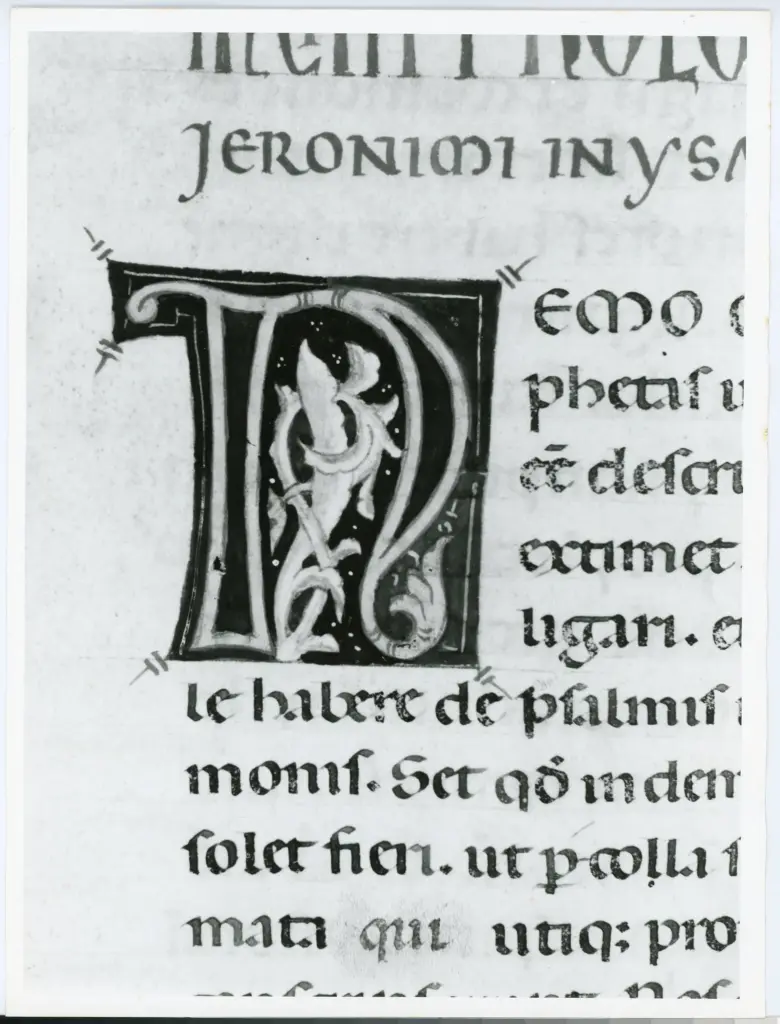 JERONIMI IN YSA
NEMO
phetaſ u
eē deſcri
extimet
ligari.
le habere de pſalmiſ
moniſ. Set qđ in dem
ſolet fieri. ut p colla ſ
mata qui utiq; pro